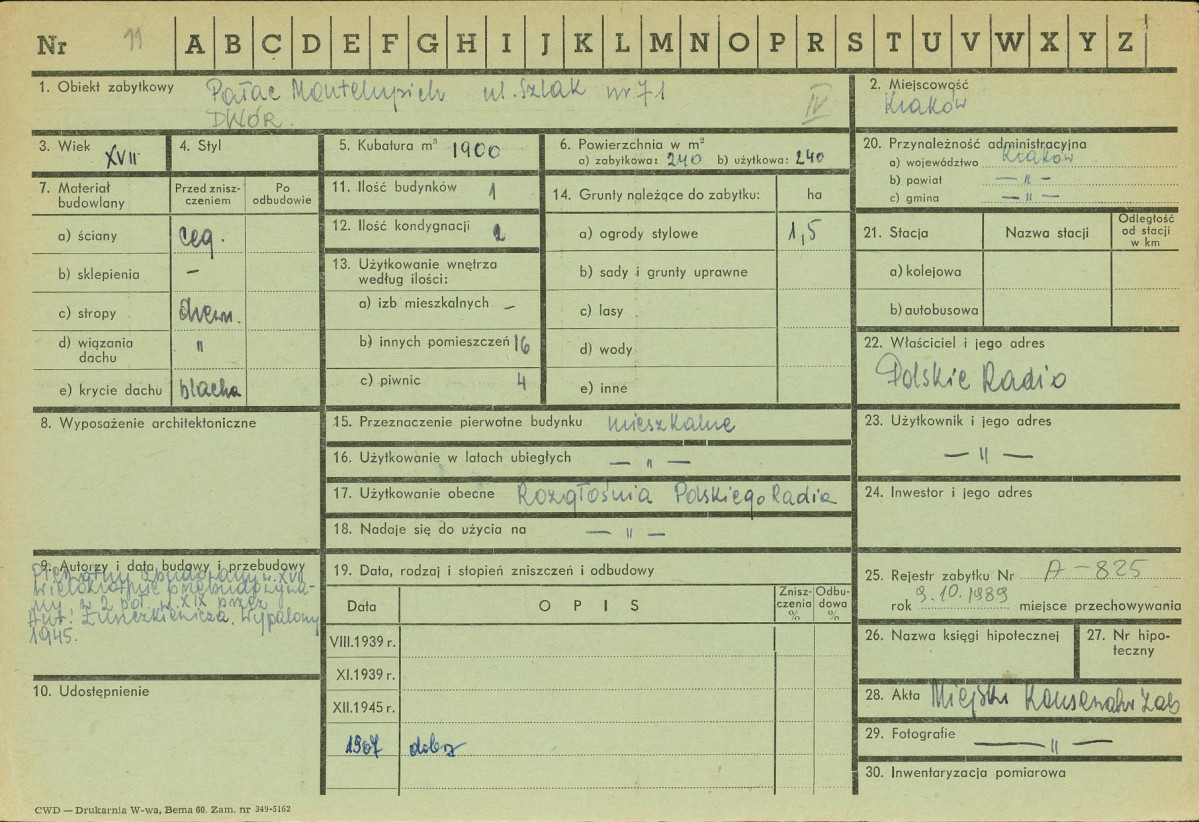 Nr 11 A B C D E F G H I J K L M N O P R S T U V W X Y Z
1. Obiekt zabytkowy Pałac Montelupich ul. Szlak nr 71
DWÓR.
IV
2. Miejscowość
Kraków
3. Wiek XVII
4. Styl
5. Kubatura m³ 1900
6. Powierzchnia w m²
a) zabytkowa: 240 b) użytkowa: 240
20. Przynależność administracyjna
a) województwo Kraków
b) powiat — " —
c) gmina — " —
7. Materiał budowlany
Przed zniszczeniem
Po odbudowie
a) ściany ceg.
b) sklepienia —
c) stropy drewn.
d) wiązania dachu "
e) krycie dachu blacha
11. Ilość budynków 1
12. Ilość kondygnacji 2
13. Użytkowanie wnętrza
według ilości:
a) izb mieszkalnych —
b) innych pomieszczeń 16
c) piwnic 4
14. Grunty należące do zabytku: ha
a) ogrody stylowe 1,5
b) sady i grunty uprawne
c) lasy
d) wody
e) inne
21. Stacja
Nazwa stacji
Odległość
od stacji
w km
a) kolejowa
b) autobusowa
22. Właściciel i jego adres
Polskie Radio
8. Wyposażenie architektoniczne
15. Przeznaczenie pierwotne budynku mieszkalne
16. Użytkowanie w latach ubiegłych — " —
17. Użytkowanie obecne Rozgłośnia Polskiego Radia
18. Nadaje się do użycia na — " —
23. Użytkownik i jego adres
— " —
24. Inwestor i jego adres
9. Autorzy i data budowy i przebudowy
w. XVI
wielokrotnie przebudowywa-
ny w 2 poł. w. XIX przez
Ant. Łuszczkiewicza. Wypalony
1945.
10. Udostępnienie
19. Data, rodzaj i stopień zniszczeń i odbudowy
Data
OPIS
Zniszczenia %
Odbudowa %
VIII.1939 r.
XI.1939 r.
XII.1945 r.
1967 dobry
25. Rejestr zabytku Nr A-825
rok 9.10.1989 miejsce przechowywania
26. Nazwa księgi hipotecznej
27. Nr hipoteczny
28. Akta Miejski Konserwator Zab
29. Fotografie — " —
30. Inwentaryzacja pomiarowa
CWD — Drukarnia W-wa, Bema 60. Zam. nr 349-5162